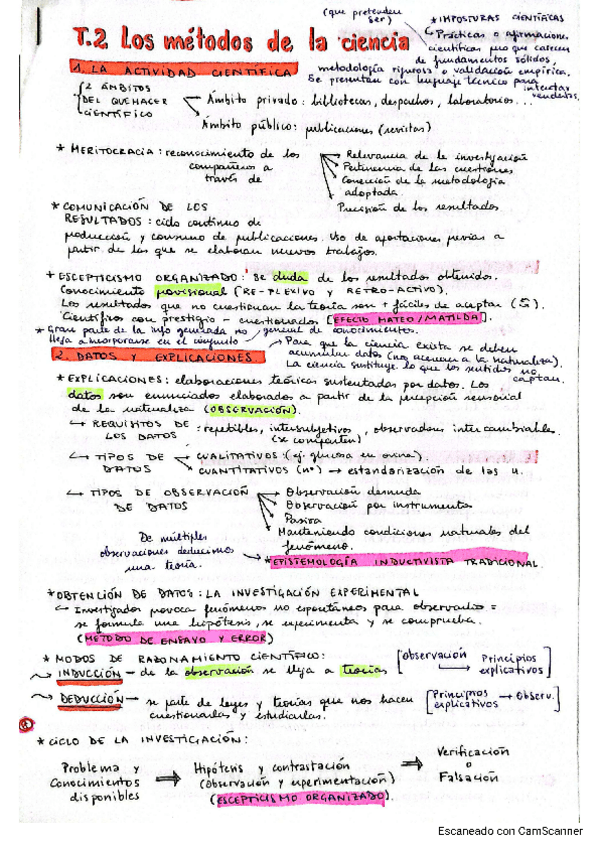 T.2 Los métodos de la ciencia
(que pretenden ser)
* IMPOSTURAS CIENTÍFICAS
↳ Prácticas o afirmaciones
científicas pero que carecen
de fundamentos sólidos,
metodología rigurosa o validación empírica.
Se presentan con lenguaje técnico para intentar
venderlas.
1. LA ACTIVIDAD CIENTÍFICA
2 ÁMBITOS
DEL QUEHACER
CIENTÍFICO
Ámbito privado: bibliotecas, despachos, laboratorios...
Ámbito público: publicaciones (revistas)
* MERITOCRACIA: reconocimiento de los
compañeros a
través de
Relevancia de la investigación
Pertinencia de las cuestiones
Corrección de la metodología
adoptada.
Precisión de los resultados
* COMUNICACIÓN DE LOS
RESULTADOS: ciclo continuo de
producción y consumo de publicaciones. Uso de aportaciones previas a
partir de las que se elaboran nuevos trabajos.
* ESCEPTICISMO ORGANIZADO: se duda de los resultados obtenidos.
Conocimiento provisional (RE-FLEXIVO y RETRO-ACTIVO).
Los resultados que no cuestionan la teoría son + fáciles de aceptar
Científicos con prestigio - cuestionados [EFECTO MATEO/MATILDA].
* Gran parte de la info generada no
llega a incorporarse en el conjunto
general de conocimientos.
2. DATOS Y EXPLICACIONES
→ Para que la ciencia exista se deben
acumular datos (nos acercan a la naturaleza).
La ciencia sustituye lo que los sentidos no
captan.
* EXPLICACIONES: elaboraciones teóricas sustentadas por datos. Los
datos son enunciados elaborados a partir de la percepción sensorial
de la naturaleza (OBSERVACIÓN).
↳ REQUISITOS DE
LOS DATOS
: repetibles, intersubjetivos, observadores intercambiables.
(se comparten)
↳ TIPOS DE
DATOS
CUALITATIVOS: (ej: glucosa en orina).
CUANTITATIVOS (nº) → estandarización de las u.
↳ TIPOS DE OBSERVACIÓN
DE DATOS
Observación desnuda
Observación por instrumentos
Pasiva
Manteniendo condiciones naturales del
fenómeno.
De múltiples
observaciones deducimos
una teoría.
* EPISTEMOLOGÍA INDUCTIVISTA TRADICIONAL.
* OBTENCIÓN DE DATOS: LA INVESTIGACIÓN EXPERIMENTAL
↳ Investigador provoca fenómenos no espontáneos para observarlos =
se formula una hipótesis, se experimenta y se comprueba.
(MÉTODO DE ENSAYO Y ERROR)
* MODOS DE RAZONAMIENTO CIENTÍFICO:
INDUCCIÓN - de la observación se llega a teorías
[Observación → Principios
explicativos]
DEDUCCIÓN - se parte de leyes y teorías que nos hacen
cuestionarlas y estudiarlas.
[Principios
explicativos → Observ.]
* CICLO DE LA INVESTIGACIÓN:
Problema y
Conocimientos
disponibles
⇒ Hipótesis y contrastación
(Observación y experimentación)
(ESCEPTICISMO ORGANIZADO).
⇒ Verificación
o
Falsación
Escaneado con CamScanner